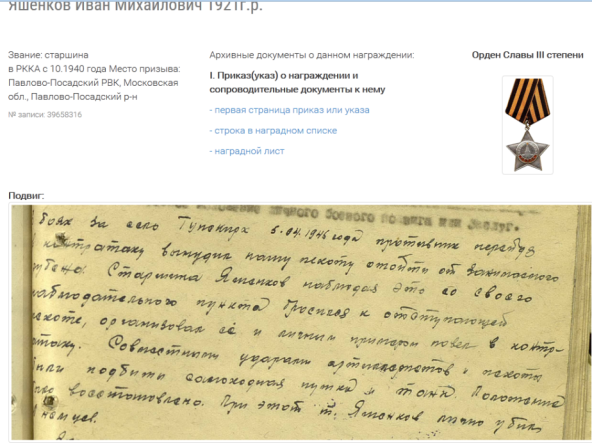 Яшенков Иван Михайлович 1921г.р.
Звание: старшина
в РККА с 10.1940 года Место призыва:
Павлово-Посадский РВК, Московская
обл., Павлово-Посадский р-н
№ записи: 39658316
Архивные документы о данном награждении:
I. Приказ(указ) о награждении и
сопроводительные документы к нему
- первая страница приказ или указа
- строка в наградном списке
- наградной лист
Орден Славы III степени
Подвиг:
личного боевого подвига или заслуг.
боях за село 5.04.1945 года противник перейдя
контратаку вынудил нашу пехоту отойти от занимаемого
рубежа. Старшина Яшенков наблюдая это со своего
наблюдательного пункта бросился к отступающей
пехоте, организовал её и личным примером повел в контр-
атаку. Совместными ударами артиллеристов и пехоты
были подбиты самоходная пушка и танк. Положение
было восстановлено. При этом т. Яшенков лично убил
немцев.